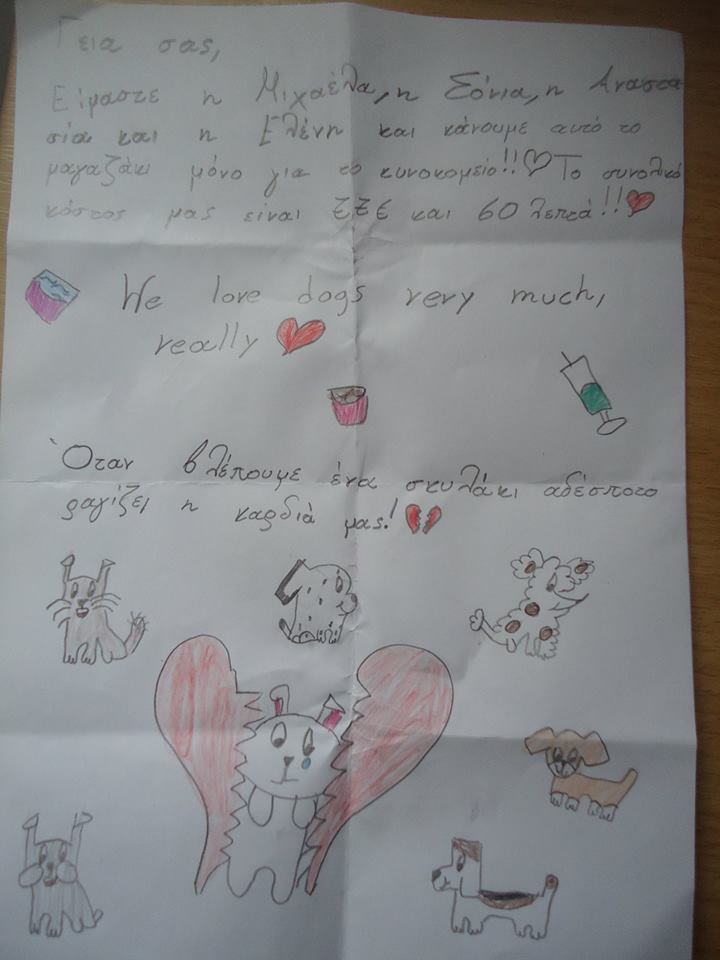 Γεια σας,
Είμαστε η Μιχαέλα, η Σόνια, η Αναστα
σία και η Ελένη και κάνουμε αυτό το
μαγαζάκι μόνο για το κυνοκομείο!!♡ Το συνολικό
κόστος μας είναι 22€ και 60 λεπτά!!♥
We love dogs very much,
really ♥
Όταν βλέπουμε ένα σκυλάκι αδέσποτο
ραγίζει η καρδιά μας!💔